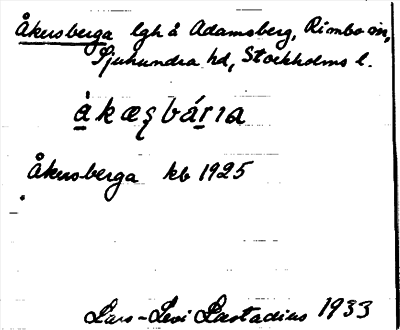 Åkersberga lgh å Adamsberg, Rimbo sn,
Sjuhundra hd, Stockholms l.
Åkersberga kb 1925
Lars-Levi Læstadius 1933